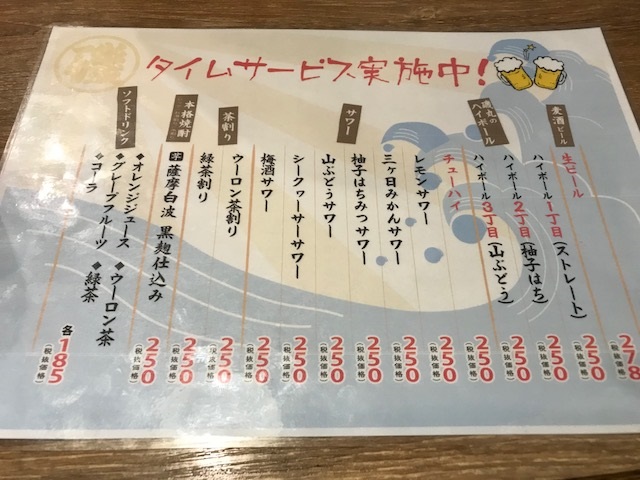 タイムサービス実施中!
麦酒 ビール
生ビール
278
(税抜価格)
ハイボール
ハイボール1丁目(ストレート)
250
(税抜価格)
ハイボール2丁目(柚子はち)
250
(税抜価格)
ハイボール3丁目(山ぶどう)
250
(税抜価格)
チューハイ
250
(税抜価格)
サワー
レモンサワー
250
(税抜価格)
三ヶ日みかんサワー
250
(税抜価格)
柚子はちみつサワー
250
(税抜価格)
山ぶどうサワー
250
(税抜価格)
シークヮーサーサワー
250
(税抜価格)
梅酒サワー
250
(税抜価格)
茶割り
ウーロン茶割り
250
(税抜価格)
緑茶割り
250
(税抜価格)
本格焼酎
芋 薩摩白波 黒麹仕込み
250
(税抜価格)
ソフトドリンク
◆オレンジジュース
◆グレープフルーツ ◆ウーロン茶
◆コーラ ◆緑茶
各185
(税抜価格)